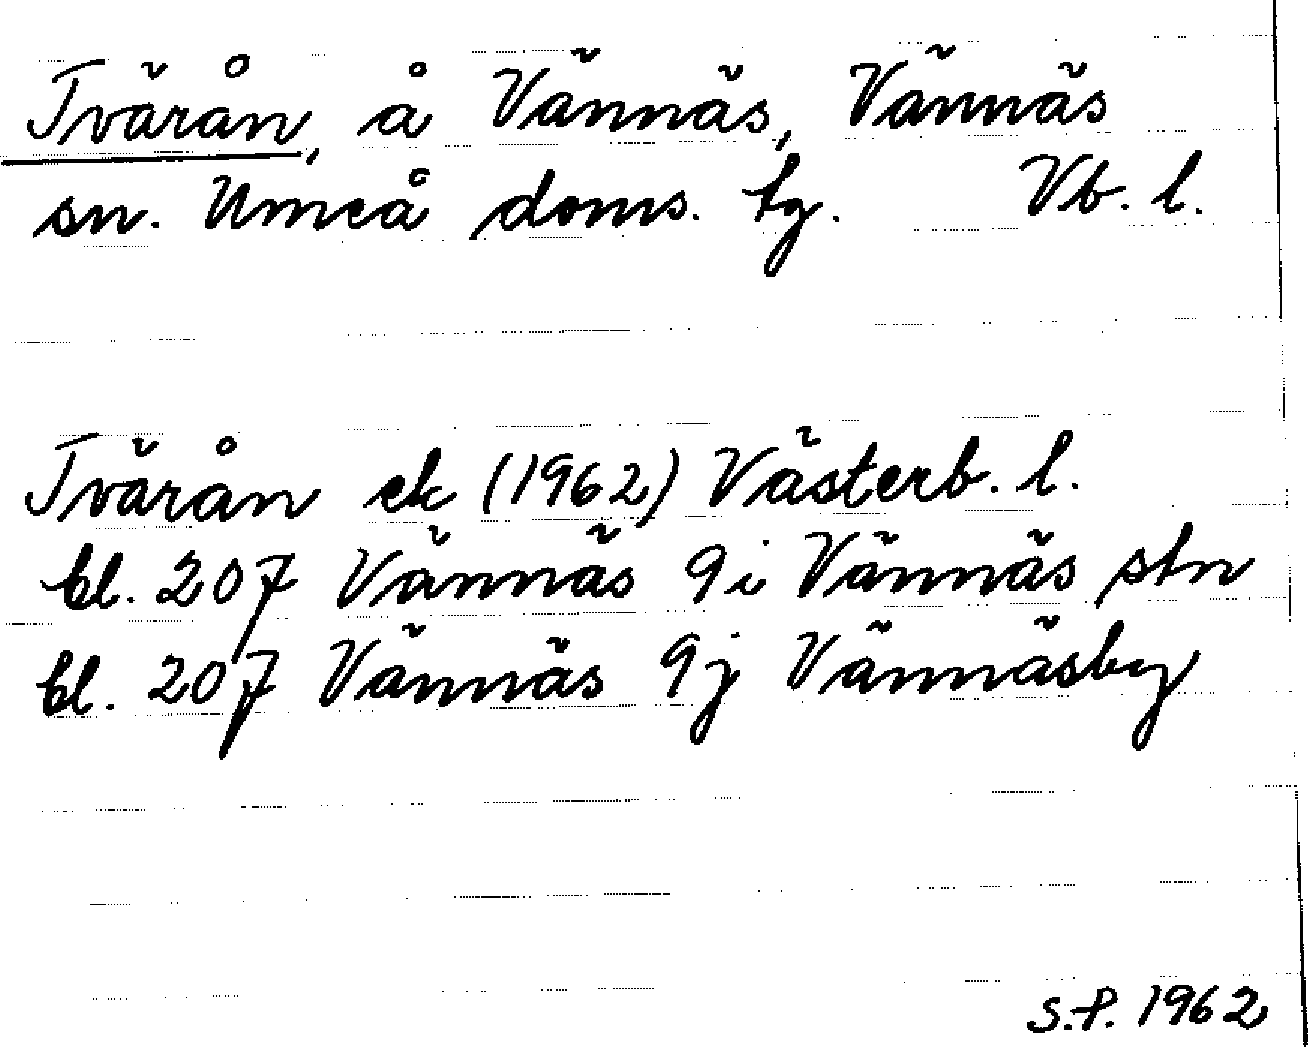 Tvärån, å Vännäs, Vännäs
sn. Umeå doms. tg. Vb. l.
Tvärån ek (1962) Västerb. l.
bl. 207 Vännäs 9i Vännäs stn
bl. 207 Vännäs 9j Vännäsby
S.P. 1962